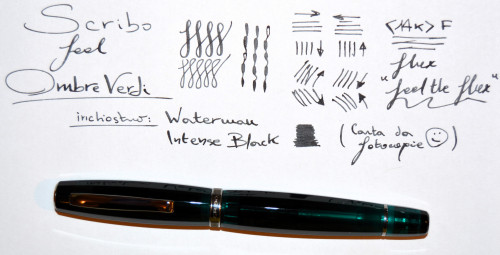 Scribo
feel
Ombre Verdi
inchiostro: Waterman
Intense Black
<14k> F
flex
"feel the flex"
(Carta da
fotocopie)